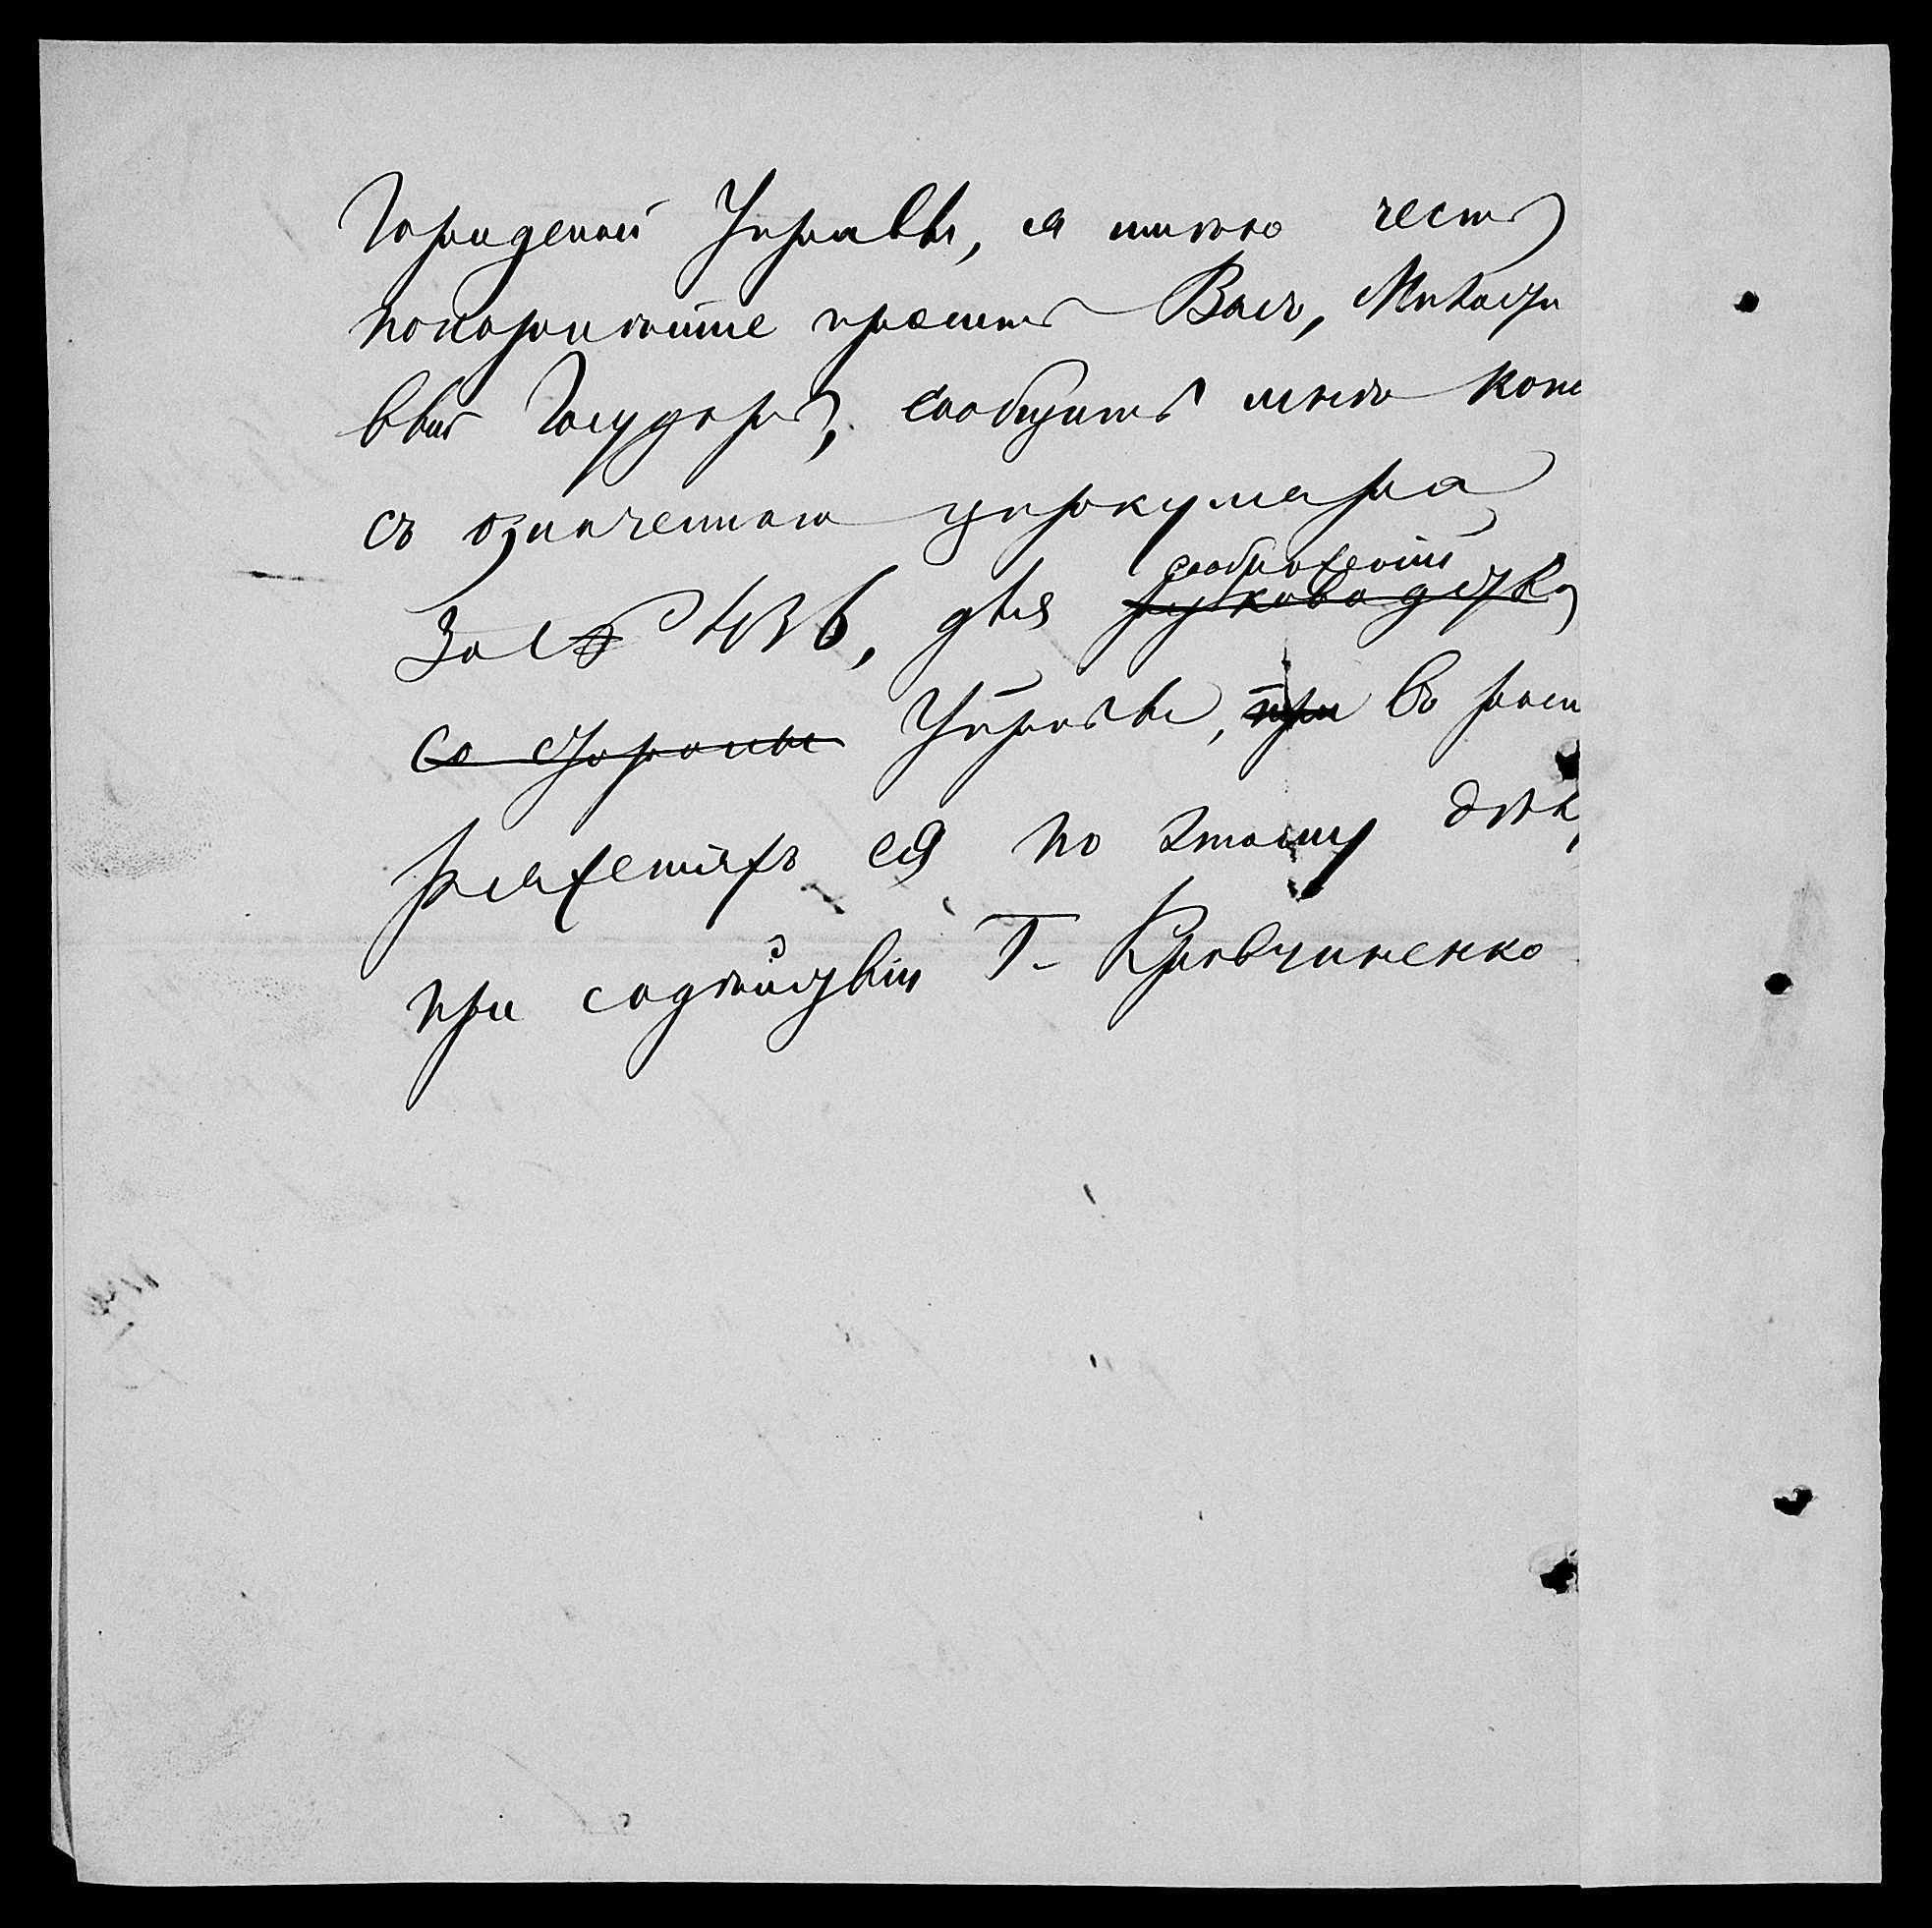 Городской Управы, я имѣю честь
покорнѣйше просить Васъ, Милости
вый Государь, сообщить мнѣ копі
съ означеннаго циркуляра
за № 4136, для соображеній
руководства
со стороны Управы, при въ распо
ряженіяхъ ея по этому дѣлу
при содѣйствіи Г. Кравчиненко